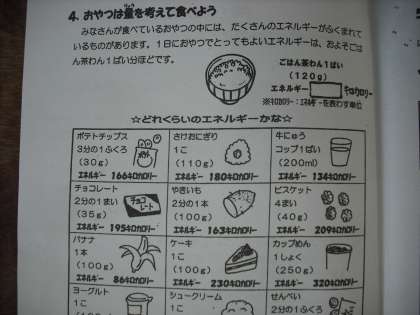 4. おやつは量を考えて食べよう
りょう
みなさんが食べているおやつの中には、たくさんのエネルギーがふくまれて
いるものがあります。1日におやつでとってもよいエネルギーは、およそごは
ん茶わん1ぱい分ほどです。
ごはん茶わん1ぱい
(120g)
エネルギー キロカロリー
※キロカロリー：エネルギーを表わす単位
☆どれくらいのエネルギーかな☆
ポテトチップス
3分の1ふくろ
(30g)
エネルギー 166キロカロリー
さけおにぎり
1こ
(110g)
エネルギー 180キロカロリー
牛にゅう
コップ1ぱい
(200ml)
エネルギー 134キロカロリー
チョコレート
2分の1まい
(35g)
チョコレート
エネルギー 195キロカロリー
やきいも
2分の1本
(100g)
エネルギー 163キロカロリー
ビスケット
4まい
(40g)
エネルギー 209キロカロリー
バナナ
1本
(100g)
エネルギー 86キロカロリー
ケーキ
1こ
(100g)
エネルギー 230キロカロリー
カップめん
1しょく
(250g)
エネルギー 320キロカロリー
ヨーグルト
1こ
シュークリーム
1こ
せんべい
2分の1ふくろ